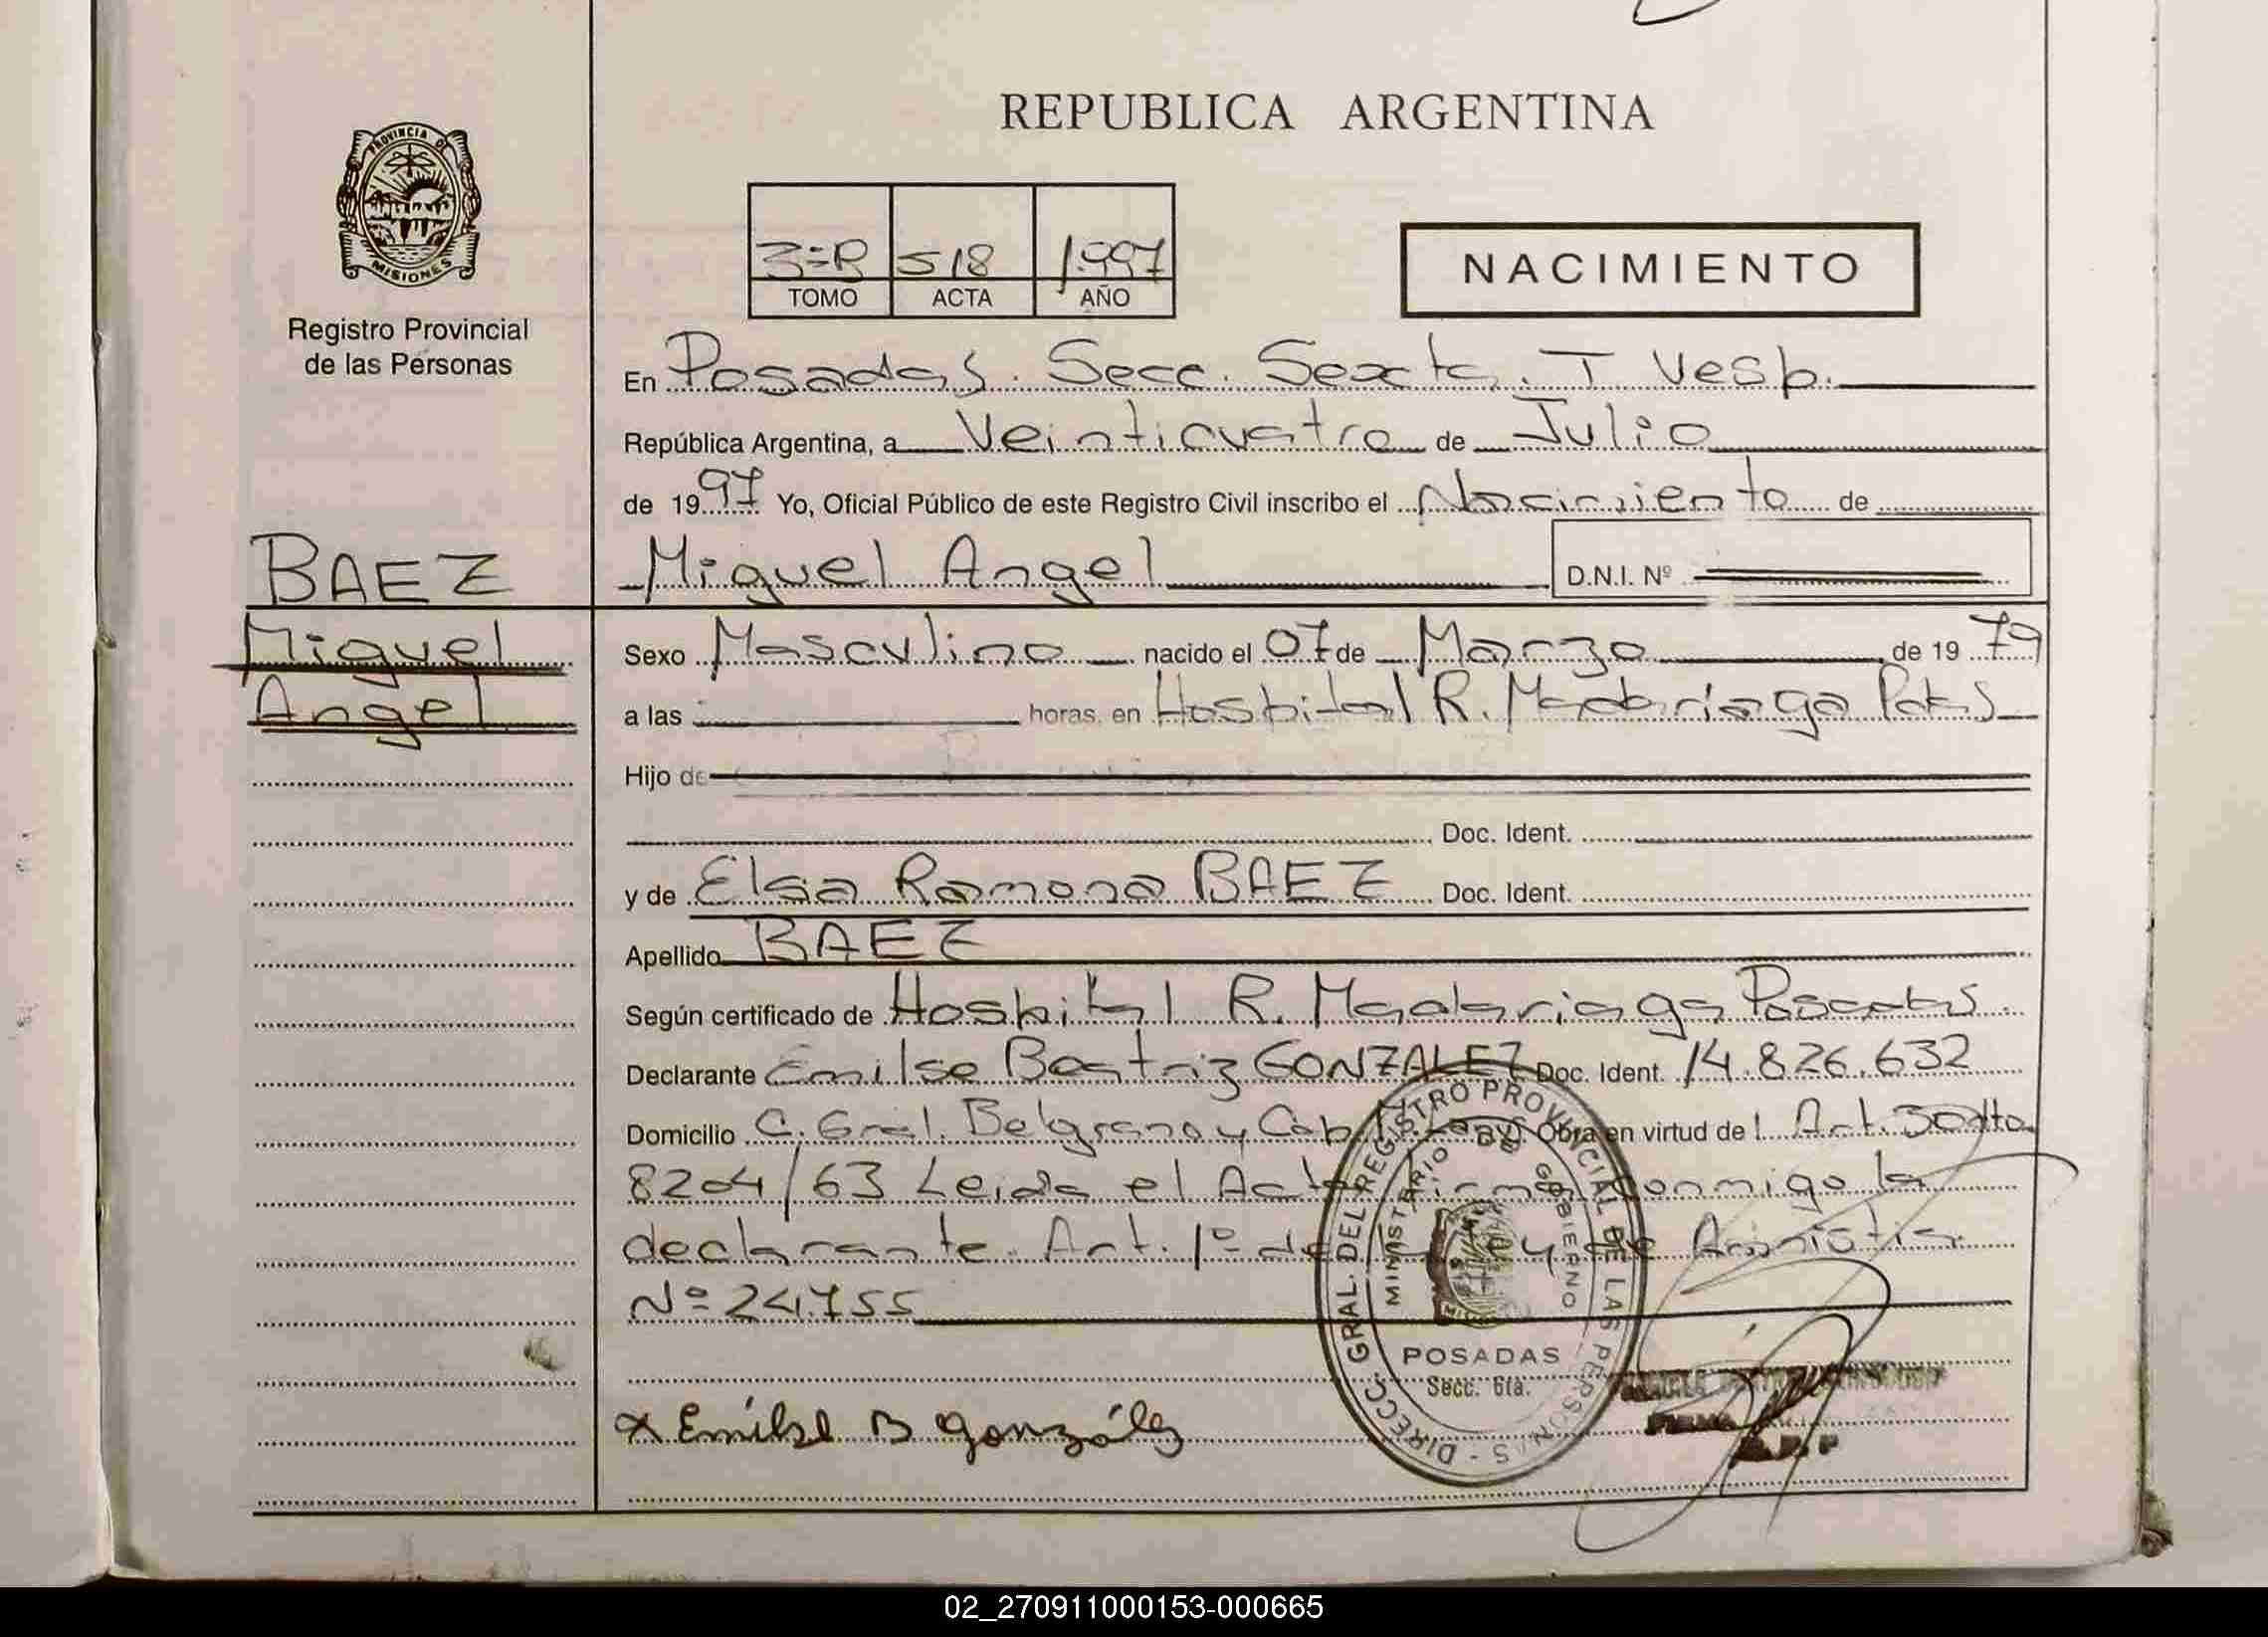 REPUBLICA ARGENTINA
PROVINCIA DE
MISIONES
Registro Provincial
de las Personas
3=R 518 1.997
TOMO ACTA AÑO
NACIMIENTO
En Posadas. Secc. Sexta. T. Vesp.
República Argentina, a Veinticuatro de Julio
de 1997 Yo, Oficial Público de este Registro Civil inscribo el Nacimiento de
BAEZ
Miguel
Angel
Miguel Angel D.N.I. Nº
Sexo Masculino nacido el 07 de Marzo de 1979
a las horas, en Hospital R. Madariaga Pdas
Hijo de
Doc. Ident.
y de Elsa Ramona BAEZ Doc. Ident.
Apellido BAEZ
Según certificado de Hospital R. Madariaga Posadas.
Declarante Emilse Beatriz GONZALEZ Doc. Ident. 14.826.632
Domicilio C. Gral. Belgrano y Cab. Obra en virtud de l Art. 30 dto
8204/63 Leida el Acta firma conmigo la
declarante. Art. 1º de Ley de Amnistia
Nº 24.755
DIRECC. GRAL. DEL REGISTRO PROVINCIAL DE LAS PERSONAS -
MINISTERIO DE GOBIERNO
POSADAS
Secc. 6ta.
x Emilse B González
FIRMA
02_270911000153-000665